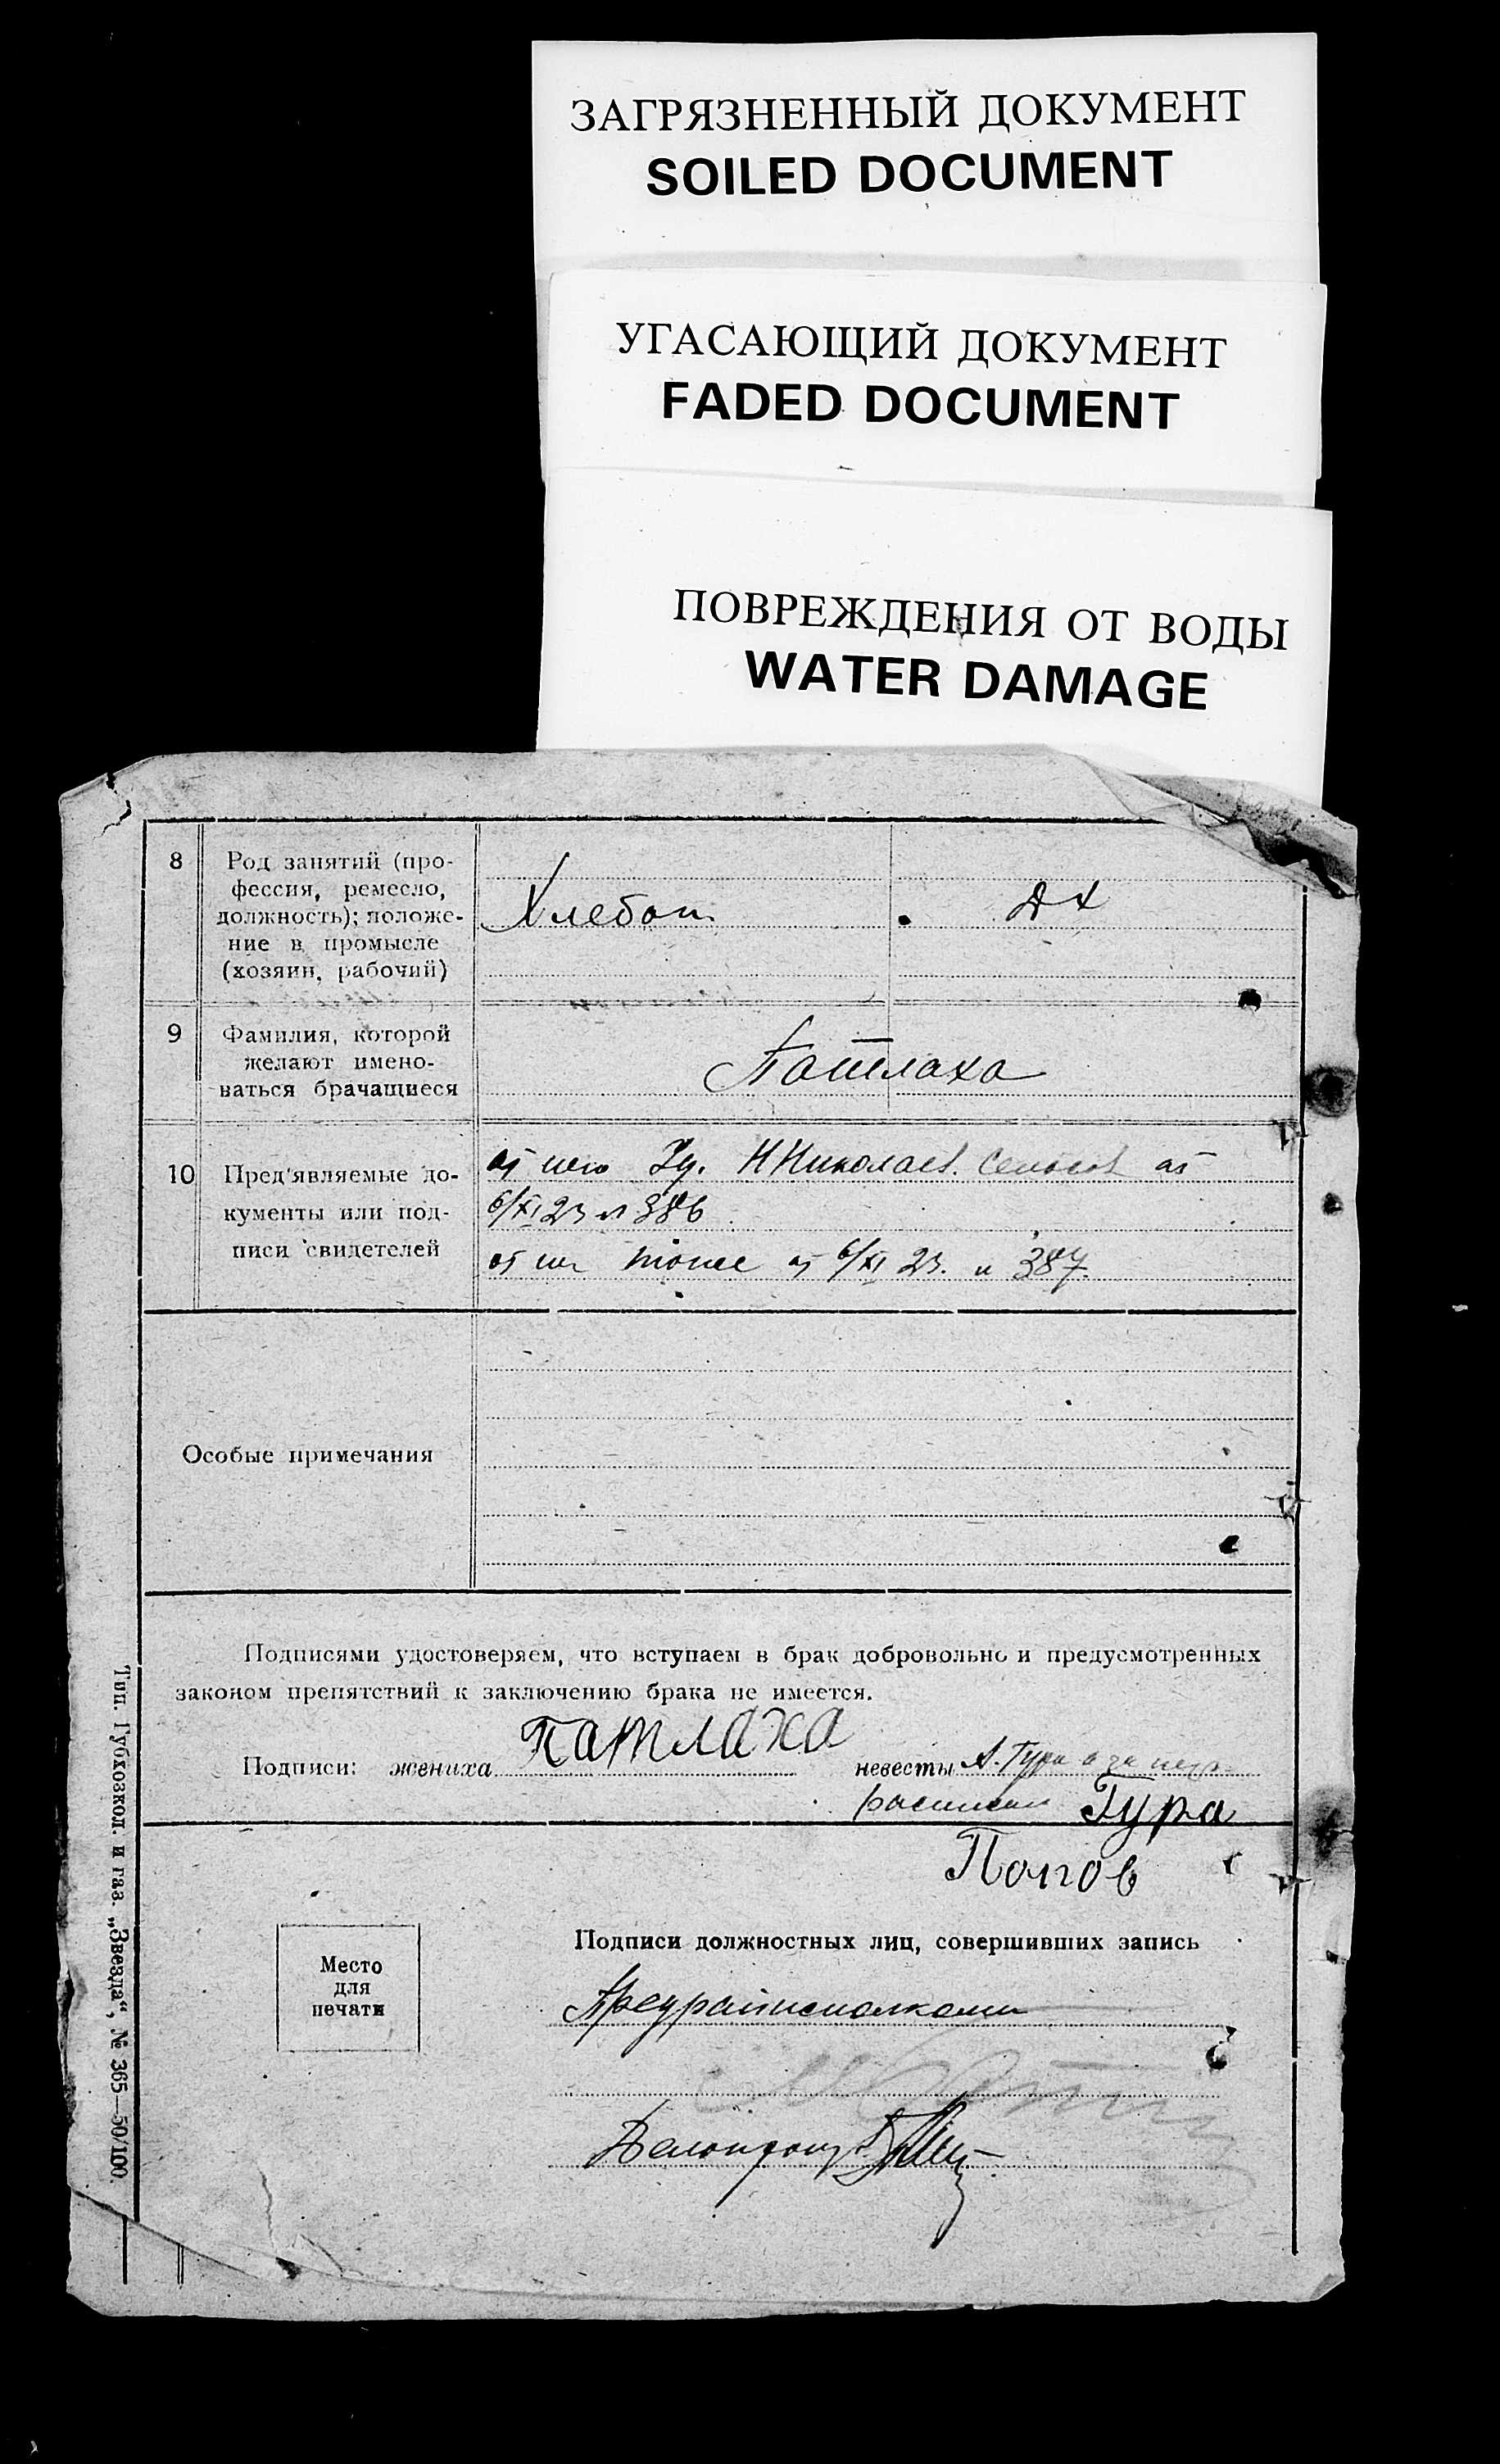 ЗАГРЯЗНЕННЫЙ ДОКУМЕНТ
SOILED DOCUMENT
УГАСАЮЩИЙ ДОКУМЕНТ
FADED DOCUMENT
ПОВРЕЖДЕНИЯ ОТ ВОДЫ
WATER DAMAGE
8
Род занятий (про-
фессия, ремесло,
должность); положе-
ние в промысле
(хозяин, рабочий)
Хлебоп.
ДХ
9
Фамилия, которой
желают имено-
ваться брачащиеся
Патлаха
10
Пред'являемые до-
кументы или под-
писи свидетелей
Н Николаев.
6/XI 23 № 386
6/XI 23. 387.
Особые примечания
Подписями удостоверяем, что вступаем в брак добровольно и предусмотренных
законом препятствий к заключению брака не имеется.
Подписи: жениха Патлаха
невесты А. Гура а за негр.
Гура
Попов
Место
для
печати
Подписи должностных лиц, совершивших запись
Предрайисполкома
Делопроиз.
Тип. Губхозкол. и газ. „Звезда“, № 365—50/100.